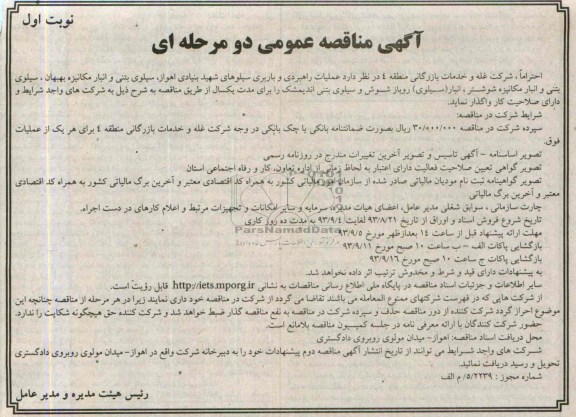 نوبت اول
آگهی مناقصه عمومی دو مرحله ای
احتراماً ، شرکت غله و خدمات بازرگانی منطقه ٤ در نظر دارد عملیات راهبردی و باربری سیلوهای شهید بنیادی اهواز، سیلوی بتنی و انبار مکانیزه بهبهان ، سیلوی
بتنی و انبار مکانیزه شوشتر ، انبار(سیلوی) روباز شوش و سیلوی بتنی اندیمشک را برای مدت یکسال از طریق مناقصه به شرح ذیل به شرکت های واجد شرایط و
دارای صلاحیت کار واگذار نماید.
شرایط شرکت در مناقصه:
سپرده شرکت در مناقصه ۳۰/۰۰۰/۰۰۰ ریال بصورت ضمانتنامه بانکی یا چک بانکی در وجه شرکت غله و خدمات بازرگانی منطقه ٤ برای هر یک از عملیات
فوق.
تصویر اساسنامه – آگهی تاسیس و تصویر آخرین تغییرات مندرج در روزنامه رسمی
تصویر گواهی تعیین صلاحیت فعالیت دارای اعتبار به لحاظ زمانی از اداره تعاون، کار و رفاه اجتماعی استان
تصویر گواهینامه ثبت نام مودیان مالیاتی صادر شده از سازمان امور مالیاتی کشور به همراه کد اقتصادی معتبر و آخرین برگ مالیاتی کشور به همراه کد اقتصادی
معتبر و آخرین برگ مالیاتی
چارت سازمانی ، سوابق شغلی مدیر عامل، اعضای هیات مدیره، سرمایه و سایر امکانات و تجهیزات مرتبط و اعلام کارهای در دست اجراء.
تاریخ شروع فروش اسناد و اوراق از تاریخ ۹۳/۸/۲۱ لغایت ۹۳/۹/٤ به مدت ده روز کاری
مهلت ارائه پیشنهاد قبل از ساعت ١٤ بعدازظهر مورخ ۹۳/۹/۵
بازگشایی پاکات الف – ب ساعت ۱۰ صبح مورخ ۹۳/۹/۱۱
بازگشایی پاکات ج ساعت ۱۰ صبح مورخ ۹۳/۹/۱۶
به پیشنهادات دارای قید و شرط و مخدوش ترتیب اثر داده نخواهد شد.
سایر اطلاعات و جزئیات اسناد مناقصه در پایگاه ملی اطلاع رسانی مناقصات به نشانی http://iets.mporg.ir قابل رؤیت است.
از شرکت هایی که در فهرست شرکتهای ممنوع المعامله می باشند تقاضا می گردد از شرکت در مناقصه خود داری نمایند زیرا در هر مرحله از مناقصه چنانچه این
موضوع احراز گردد شرکت کننده از دور مناقصه حذف و سپرده شرکت در مناقصه به نفع مناقصه گذار ضبط خواهد شد و شرکت کننده حق هیچگونه شکایت را ندارد.
حضور شرکت کنندگان با ارائه معرفی نامه در جلسه کمیسیون مناقصه بلامانع است.
محل دریافت اسناد مناقصه: اهواز- میدان مولوی روبروی دادگستری
شرکت های واجد شرایط می توانند از تاریخ انتشار آگهی مناقصه دوم پیشنهادات خود را به دبیرخانه شرکت واقع در اهواز- میدان مولوی روبروی دادگستری
تحویل و رسید دریافت نمائید.
شماره مجوز : ۵/۲۲۳۹/ م الف
رئیس هیئت مدیره و مدیر عامل
ParsNamadData